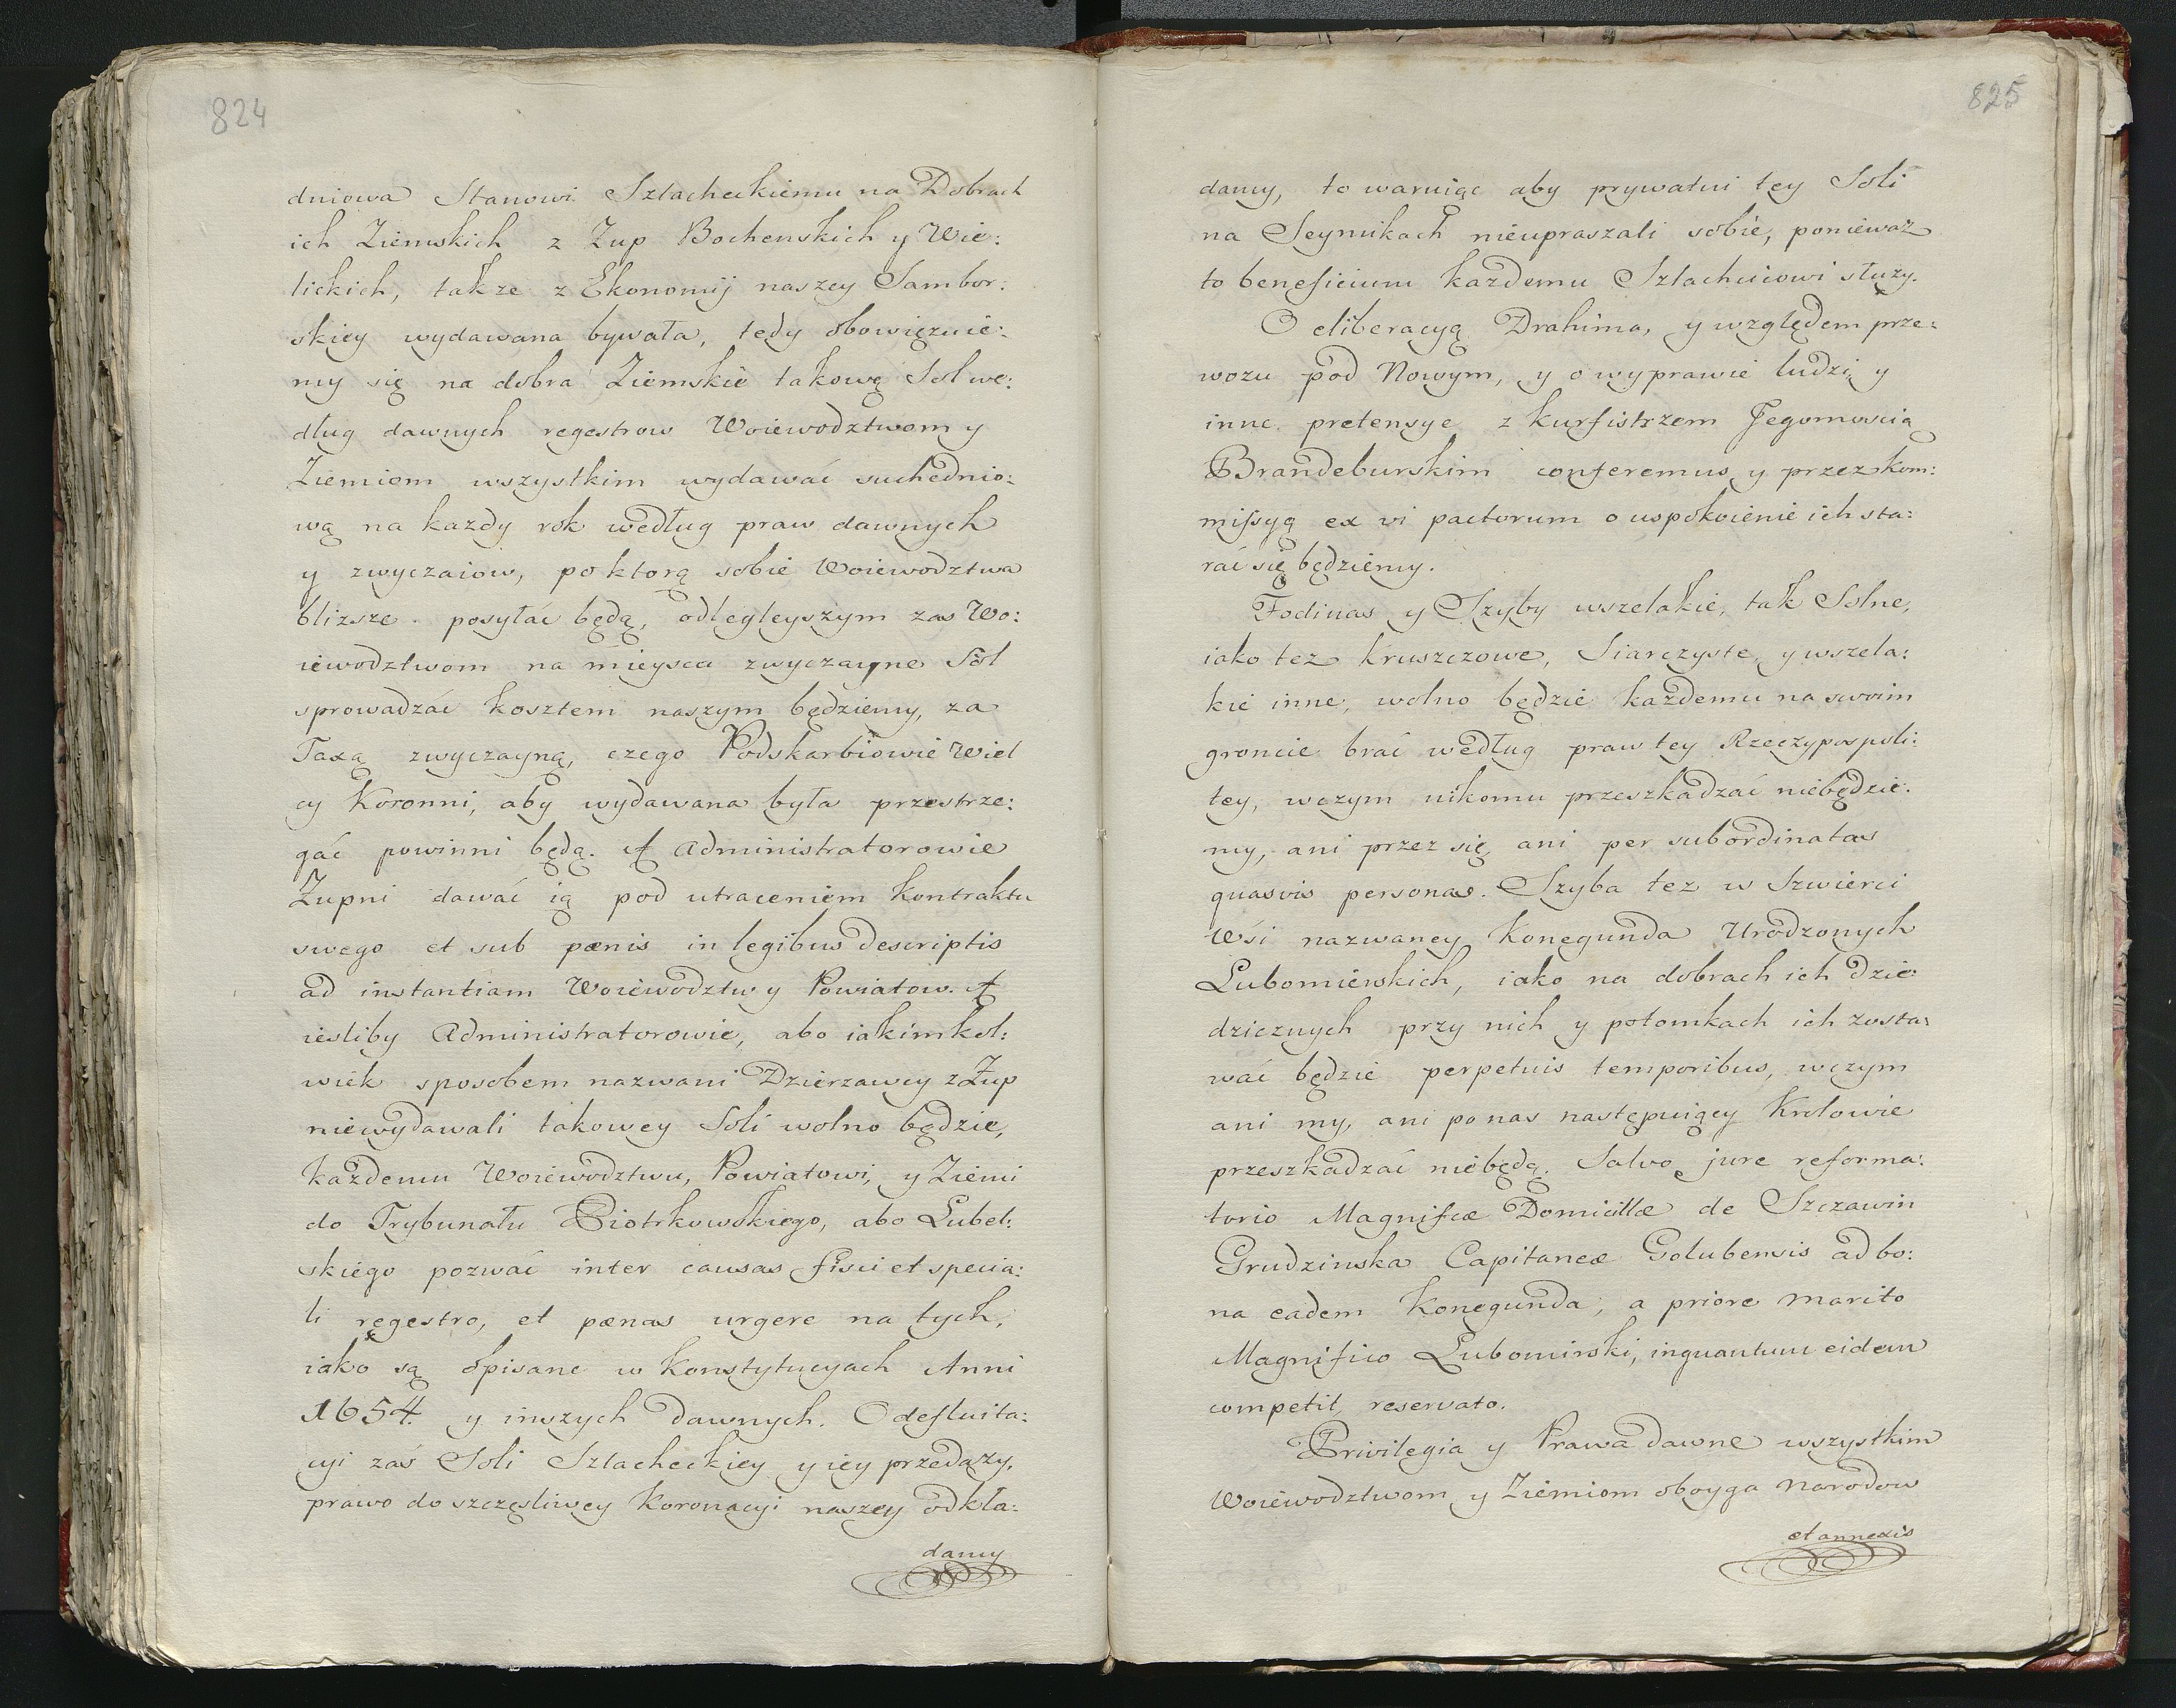 824
dniowa Stanowi Szlacheckiemu na Dobrach
ich Ziemskich z Zup Bochenskich y Wie:
lickich, takze z Ekonomij naszey Sambor:
skiey wydawana bywała, tedy obowięzuie:
my się na dobra Ziemskie takową Sol we:
dług dawnych regestrow Woiewodztwom y
Ziemiom wszystkim wydawać suchednio:
wą na kazdy rok według praw dawnych
y zwyczaiow, po ktorą sobie Woiewodztwa
blizsze posyłać będą, odlegleyszym zas Wo:
iewodztwom na mieysca zwyczayne Sol
sprowadzać kosztem naszym będziemy, za
Taxą zwyczayną, czego Podskarbiowie Wiel
cy Koronni, aby wydawana była przestrze:
gać powinni będą. A Administratorowie
Zupni dawać ią pod utraceniem kontraktu
swego et sub pœnis in legibus descriptis
ad instantiam Woiewodztw y Powiatow. A
iesliby Administratorowie, abo iakimkol:
wiek sposobem nazwani Dzierzawcy z Zup
niewydawali takowey Soli wolno będzie,
kazdemu Woiewodztwu, Powiatowi, y Ziemi
do Trybunału Piotrkowskiego, abo Lubel:
skiego pozwać inter causas fisci et specia:
li regestro, et pœnas urgere na tych,
iako są opisane w Konstytucyach Anni
1654. y inszych dawnych. O defluita:
cyi zaś Soli Szlacheckiey y iey przedazy,
prawo do szczęsliwey Koronacyi naszey odkła:
damy
825
damy, to waruiąc aby prywatni tey Soli
na Seymikach nieupraszali sobie, poniewaz
to beneficium kazdemu Szlachcicowi słuzy.
O eliberacyą Drahima, y względem prze:
wozu pod Nowym, y o wyprawie ludzi y
inne pretensye z kurfistrzem Jegomoscią
Brandeburskim conferemus y przez kom:
missyą ex vi pactorum o uspokoienie ich sta:
rać się będziemy.
Fodinas y Szyby wszelakie, tak Solne,
iako tez kruszczowe, Siarczyste, y wszela:
kie inne, wolno będzie kazdemu na swoim
groncie brać według praw tey Rzeczypospoli:
tey, wczym nikomu przeszkadzać niebędzie:
my, ani przez się ani per subordinatas
quasvis personas. Szyba tez w Szwierci
Wśi nazwaney Konegunda Urodzonych
Lubomierskich, iako na dobrach ich dzie:
dzicznych przy nich y potomkach ich zosta:
wać będzie perpetuis temporibus, wczym
ani my, ani po nas następuiący Krolowie
przeszkadzać niebędą. Salvo jure reforma:
torio Magnificæ Domicillæ de Szczawin
Grudzinska Capitaneæ Golubensis ad bo:
na eadem Konegunda, a priore marito
Magnifico Lubomirski, inquantum eidem
competit, reservato.
Privilegia y Prawa dawne wszystkim
Woiewodztwom y Ziemiom oboyga narodow
et annexis